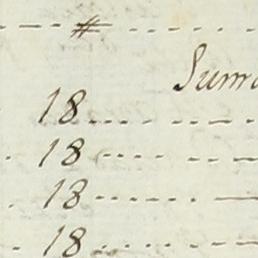 #
Suma
18
18
18
18